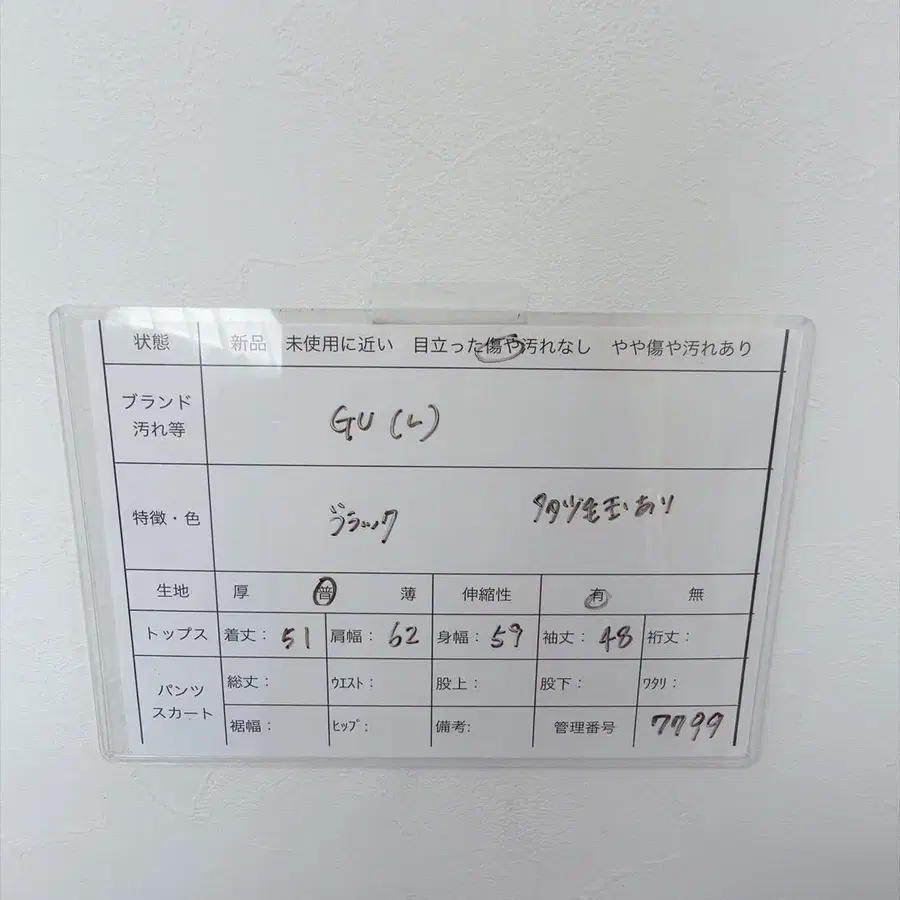 状態 新品 未使用に近い 目立った傷や汚れなし やや傷や汚れあり
ブランド 汚れ等 GU (L)
特徴・色 ブラック 毛玉あり
生地 厚 普 薄 伸縮性 有 無
トップス 着丈: 51 肩幅: 62 身幅: 59 袖丈: 48 裄丈:
パンツ スカート 総丈: ウエスト: 股上: 股下: ワタリ:
裾幅: ヒップ: 備考: 管理番号 7799